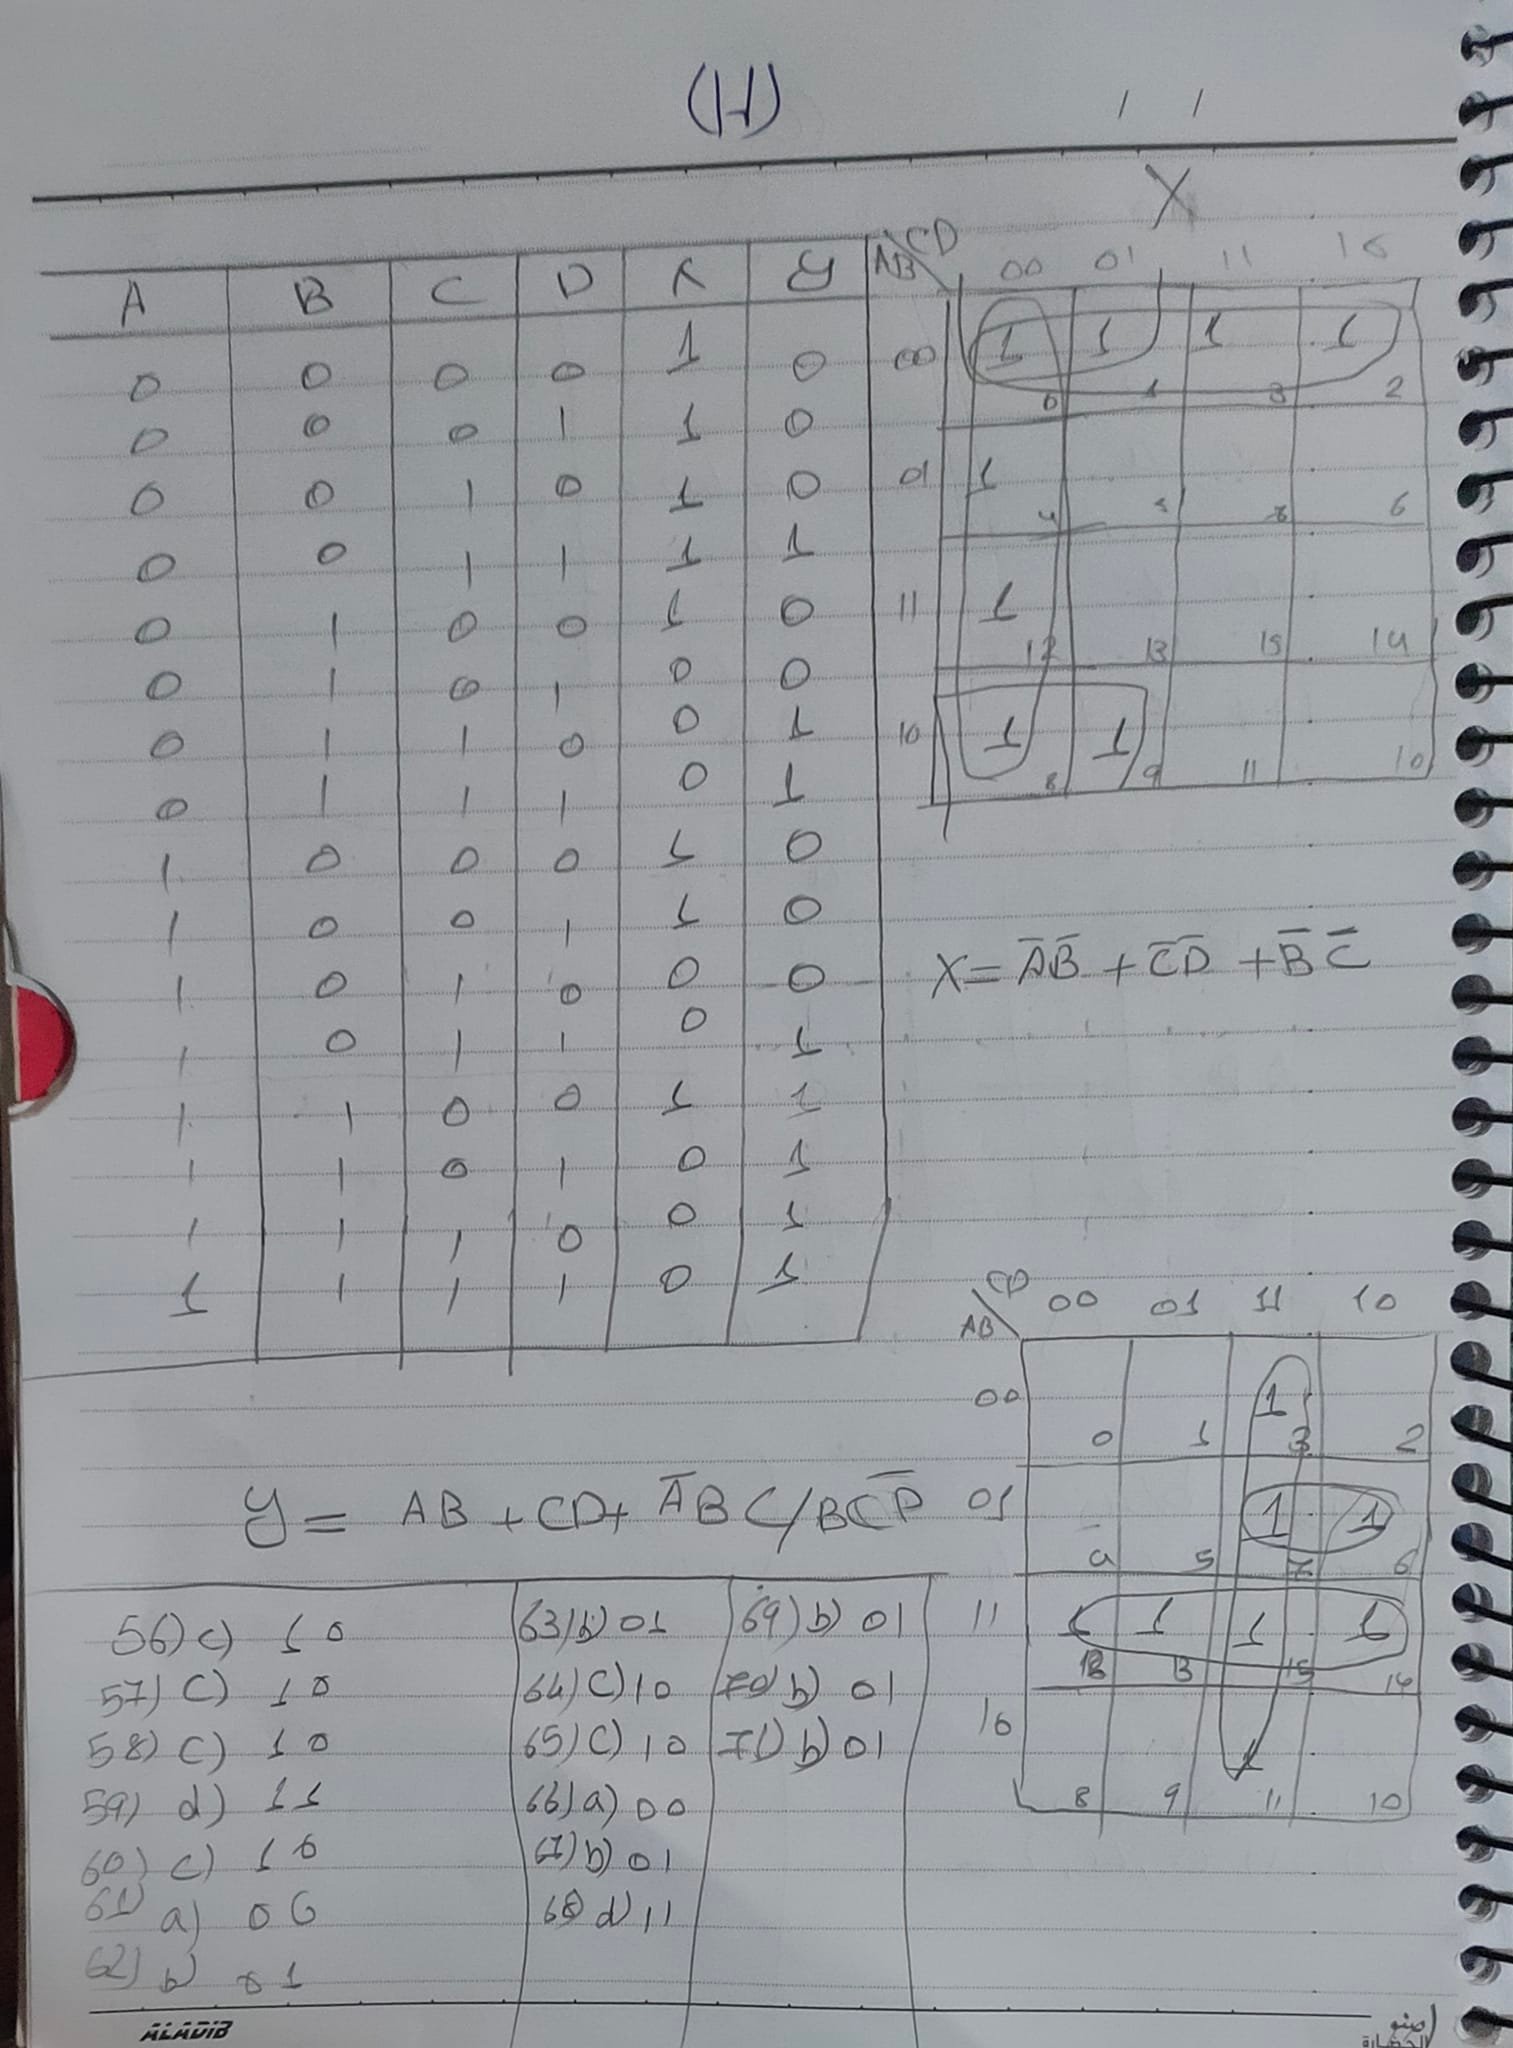 (H)
/ /
X
A B C D X y
0 0 0 0 1 0
0 0 0 1 1 0
0 0 1 0 1 0
0 0 1 1 1 1
0 1 0 0 1 0
0 1 0 1 0 0
0 1 1 0 0 1
0 1 1 1 0 1
1 0 0 0 1 0
1 0 0 1 1 0
1 0 1 0 0 0
1 0 1 1 0 1
1 1 0 0 1 1
1 1 0 1 0 1
1 1 1 0 0 1
1 1 1 1 0 1
AB\CD 00 01 11 10
00 1 1 1 1
0 1 3 2
01 1
4 5 7 6
11 1
12 13 15 14
10 1 1
8 9 11 10
X = A̅B̅ + C̅D̅ + B̅C̅
AB\CD 00 01 11 10
00 1
0 1 3 2
01 1 1
4 5 7 6
11 1 1 1 1
12 13 15 14
10 1
8 9 11 10
y = AB + CD + A̅BC/BCD̅
56) c) 10
57) C) 10
58) C) 10
59) d) 11
60) c) 10
61) a) 00
62) b) 01
63) b) 01
64) C) 10
65) C) 10
66) a) 00
67) b) 01
68) d) 11
69) b) 01
70) b) 01
71) b) 01
ALADIB
الحضارة